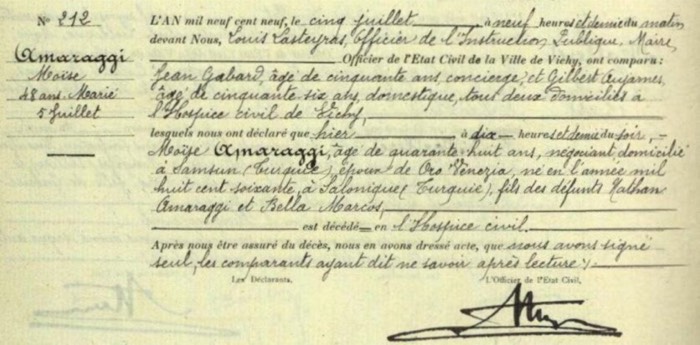 N° 212
Amaraggi
Moïse
48 ans. Marié
5 Juillet
L'AN mil neuf cent neuf, le cinq juillet à neuf heures et demie du matin
devant Nous, Louis Lasteyras, Officier de l'Instruction Publique, Maire,
Officier de l'Etat Civil de la Ville de Vichy, ont comparu :
Jean Gabard, âgé de cinquante ans, concierge, et Gilbert Aujames,
âgé de cinquante six ans, domestique, tous deux domiciliés à
l'Hospice civil de Vichy,
lesquels nous ont déclaré que hier à dix heures et demie du soir,
Moïse Amaraggi, âgé de quarante huit ans, négociant, domicilié
à Samsun (Turquie), époux de Oro Venezia, né en l'année mil
huit cent soixante, à Salonique (Turquie), fils des défunts Nathan
Amaraggi et Bella Marcos,
est décédé en l'Hospice civil.
Après nous être assuré du décès, nous en avons dressé acte, que nous avons signé
seul, les comparants ayant dit ne savoir après lecture ;
Les Déclarants,
L'Officier de l'Etat Civil,